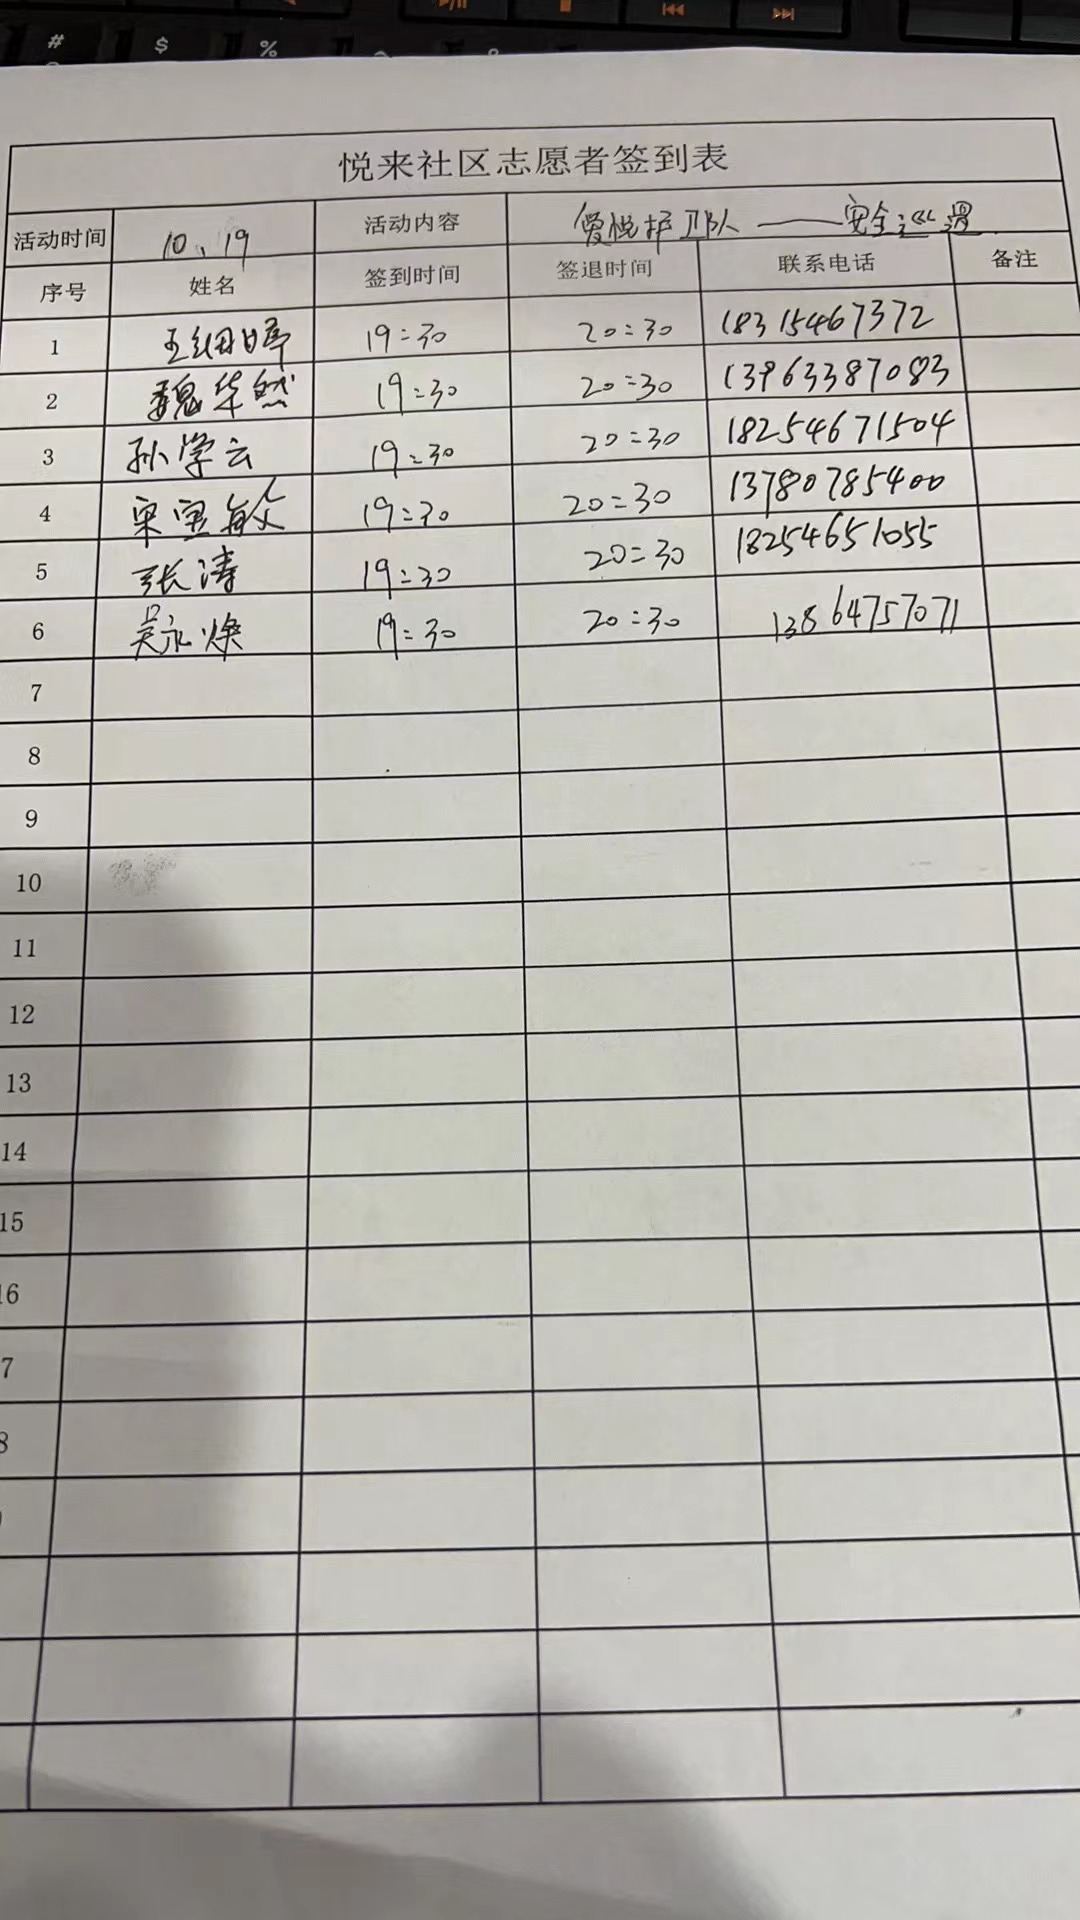 # $ %
悦来社区志愿者签到表
活动时间 10、19 活动内容 爱悦护卫队——安全巡逻
序号 姓名 签到时间 签退时间 联系电话 备注
1 19:30 20:30 18315467372
2 魏华然 19:30 20:30 13963387083
3 孙学云 19:30 20:30 18254671504
4 宋宝敏 19:30 20:30 13780785400
5 张涛 19:30 20:30 18254651055
6 吴永焕 19:30 20:30 13864757071
7
8
9
10
11
12
13
14
15
16
7
8